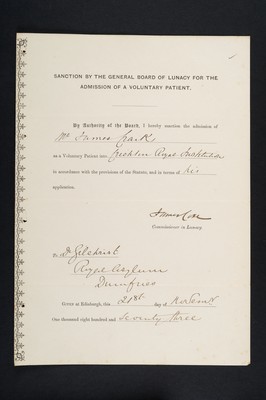 SANCTION BY THE GENERAL BOARD OF LUNACY FOR THE
ADMISSION OF A VOLUNTARY PATIENT.
By Authority of the Board, I hereby sanction the admission of
Mr James
as a Voluntary Patient into Crichton Royal Institution
in accordance with the provisions of the Statute, and in terms of his
application.
James Coxe
Commissioner in Lunacy.
To Dr Gilchrist
Royal Asylum
Dumfries
GIVEN at Edinburgh, this 21st day of Novemr
One thousand eight hundred and Seventy three